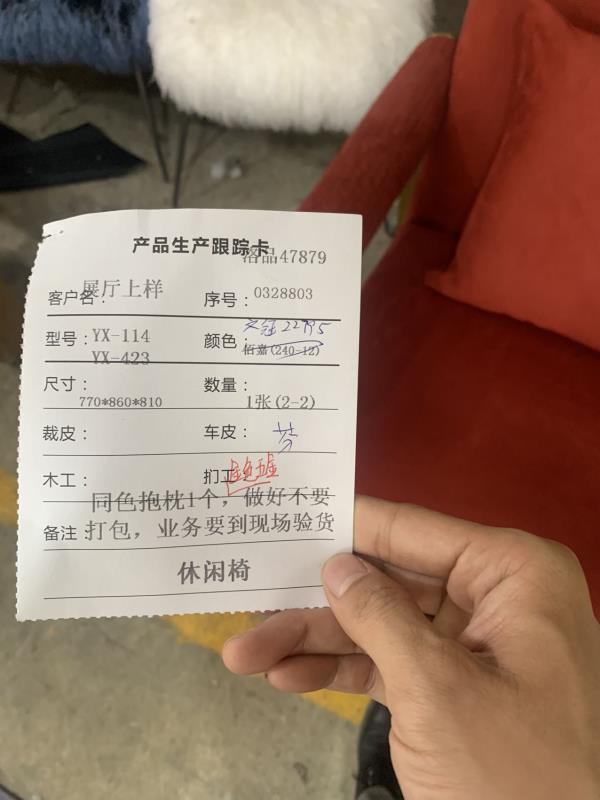 产品生产跟踪卡
洛品47879
客户名：展厅上样 序号：0328803
型号：YX-114 颜色：文冠22795
YX-423 佰嘉(240-12)
尺寸：770*860*810 数量：1张(2-2)
裁皮： 车皮：芬
木工： 扪工
同色抱枕1个，做好不要
备注：打包，业务要到现场验货
休闲椅